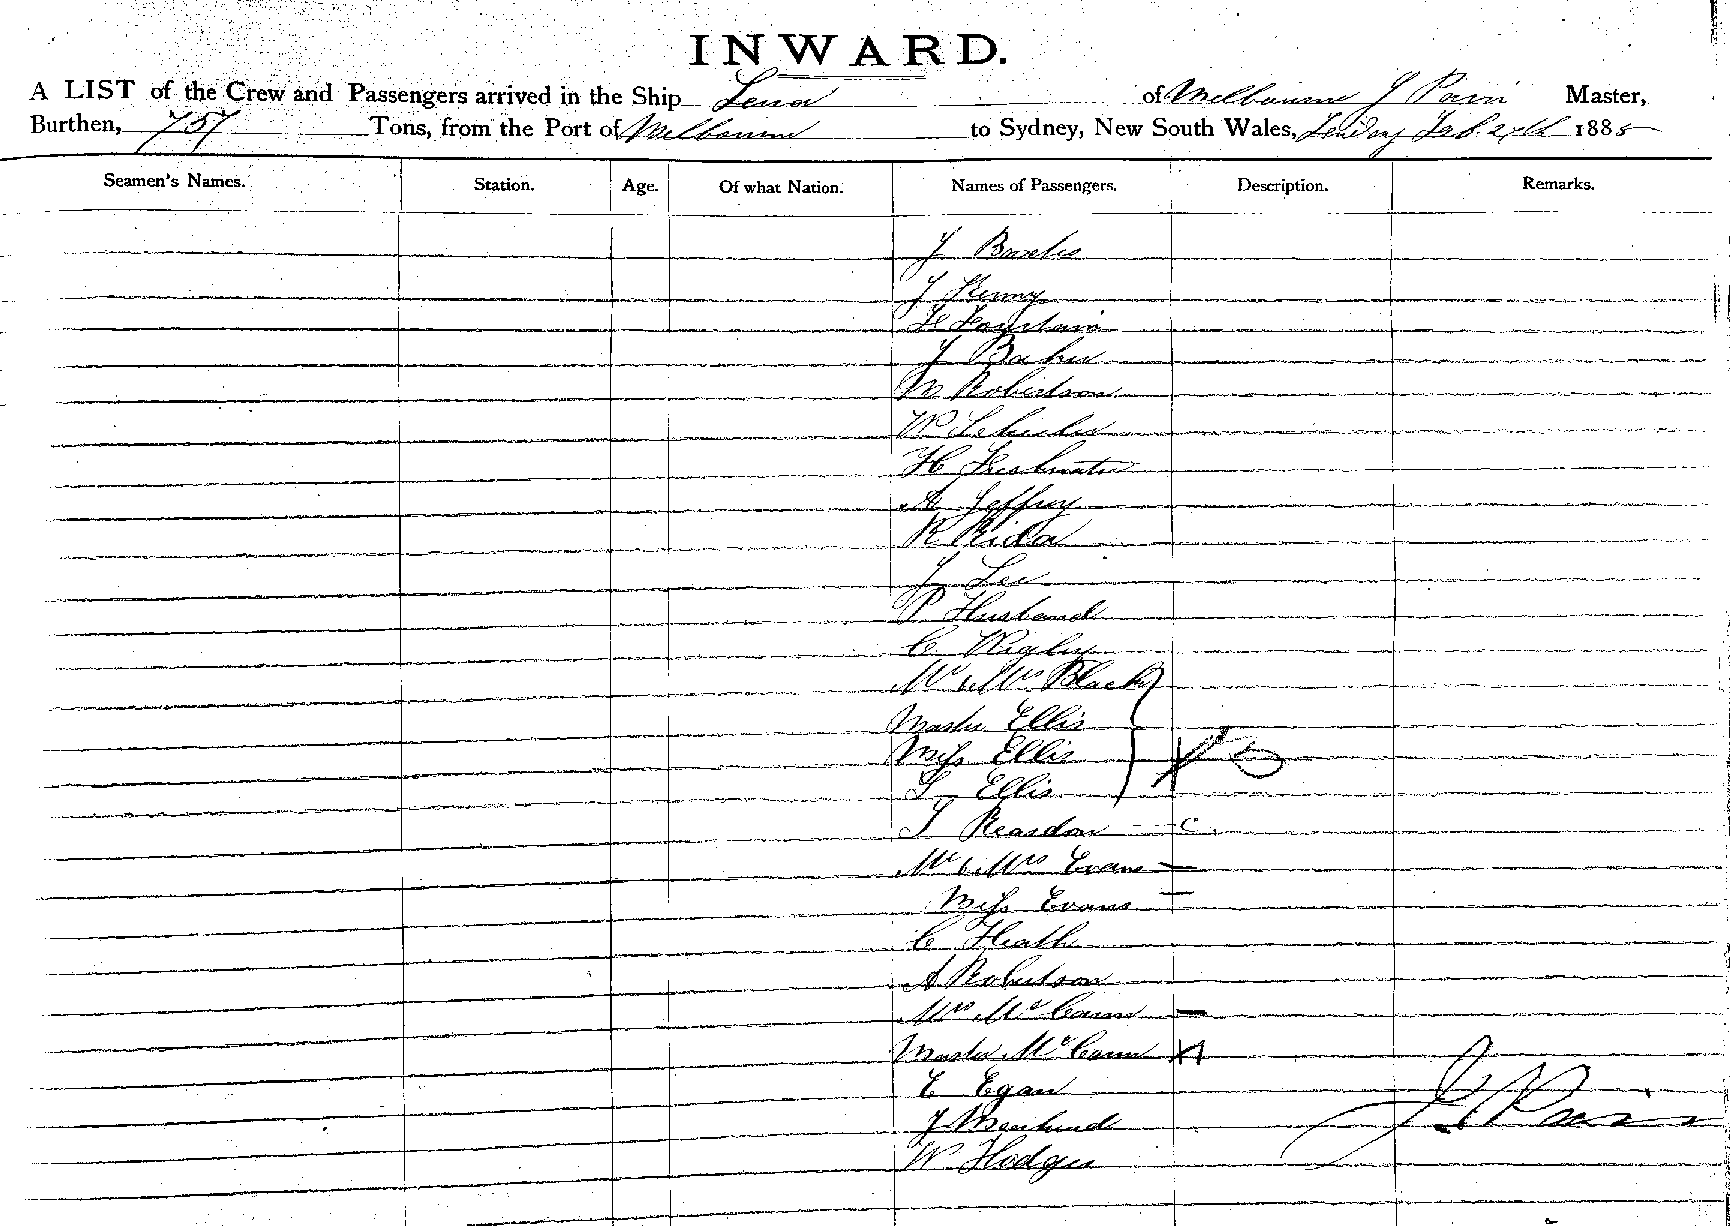 INWARD.
A LIST of the Crew and Passengers arrived in the Ship Lena of Melbourne J Master,
Burthen, 757 Tons, from the Port of Melbourne to Sydney, New South Wales, Feb. 1885
Seamen's Names. Station. Age. Of what Nation. Names of Passengers. Description. Remarks.
J
J Kenny
H Fountain
J Baker
M Robertson
W
H Freshwater
A Jeffrey
R
J Lee
P Husband
C Rigby
Mr & Mrs Black
Master Ellis
Miss Ellis
S Ellis
J Reardon C
Mr & Mrs Evans
Miss Evans
C Heath
A Robertson
Mrs McCann
Master McCann
E Egan
J
W Hodges